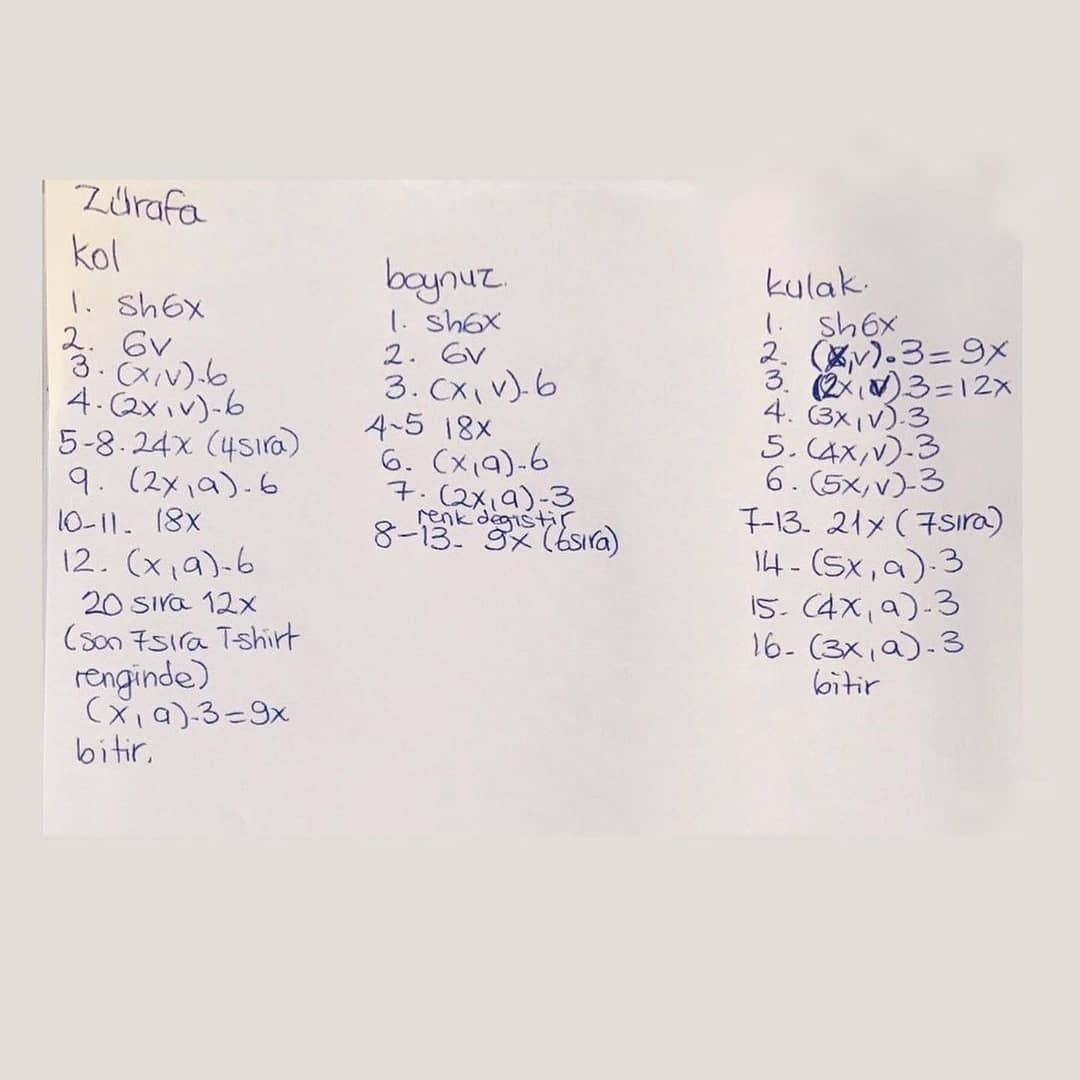 Zürafa
kol
1. sh6x
2. 6v
3. (x,v)-6
4. (2x,v)-6
5-8. 24x (4sıra)
9. (2x,a)-6
10-11. 18x
12. (x,a)-6
20 sıra 12x
(son 7sıra T-shirt
renginde)
(x,a)-3=9x
bitir.
boynuz.
1. sh6x
2. 6v
3. (x,v)-6
4-5 18x
6. (x,a)-6
7. (2x,a)-3
renk degıstir
8-13- 9x (6sıra)
kulak.
1. sh6x
2. (x,v).3=9x
3. (2x,v)3=12x
4. (3x,v).3
5. (4x,v)-3
6. (5x,v)-3
7-13- 21x (7sıra)
14- (5x,a).3
15- (4x,a)-3
16- (3x,a)-3
bitir